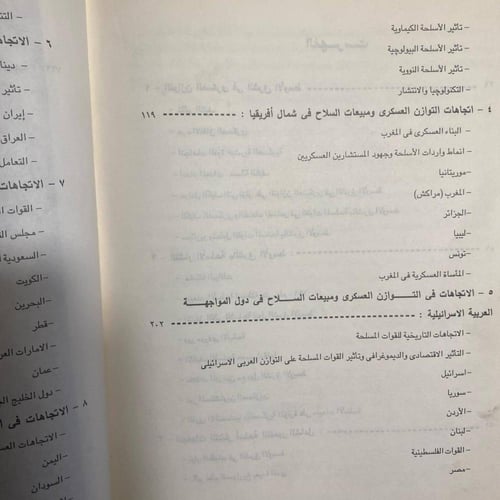 - تأثير الأسلحة الكيماوية
- تأثير الأسلحة البيولوجية
- تأثير الأسلحة النووية
- التكنولوجيا والانتشار
٤ - اتجاهات التوازن العسكرى ومبيعات السلاح فى شمال أفريقيا : ١١٩
- البناء العسكرى فى المغرب
- انماط واردات الأسلحة وجهود المستشارين العسكريين
- موريتانيا
- المغرب (مراكش)
- الجزائر
- ليبيا
- تونس
- المأساة العسكرية فى المغرب
٥ - الاتجاهات فى التوازن العسكرى ومبيعات السلاح فى دول المواجهة
العربية الاسرائيلية : ٢٠٢
- الاتجاهات التاريخية للقوات المسلحة
- التأثير الاقتصادى والديموغرافى وتأثير القوات المسلحة على التوازن العربى الاسرائيلى
- اسرائيل
- سوريا
- الأردن
- لبنان
- القوات الفلسطينية
- مصر
٦ - الاتجاها
- تأثير
- إيران
- العراق
- التعامل
٧ - الاتجاهات
- القوات
- مجلس
- السعودية
- الكويت
- البحرين
- قطر
- الامارات
- عمان
- دول الخليج
٨ - الاتجاهات فى
- الاتجاهات
- اليمن
- السودان